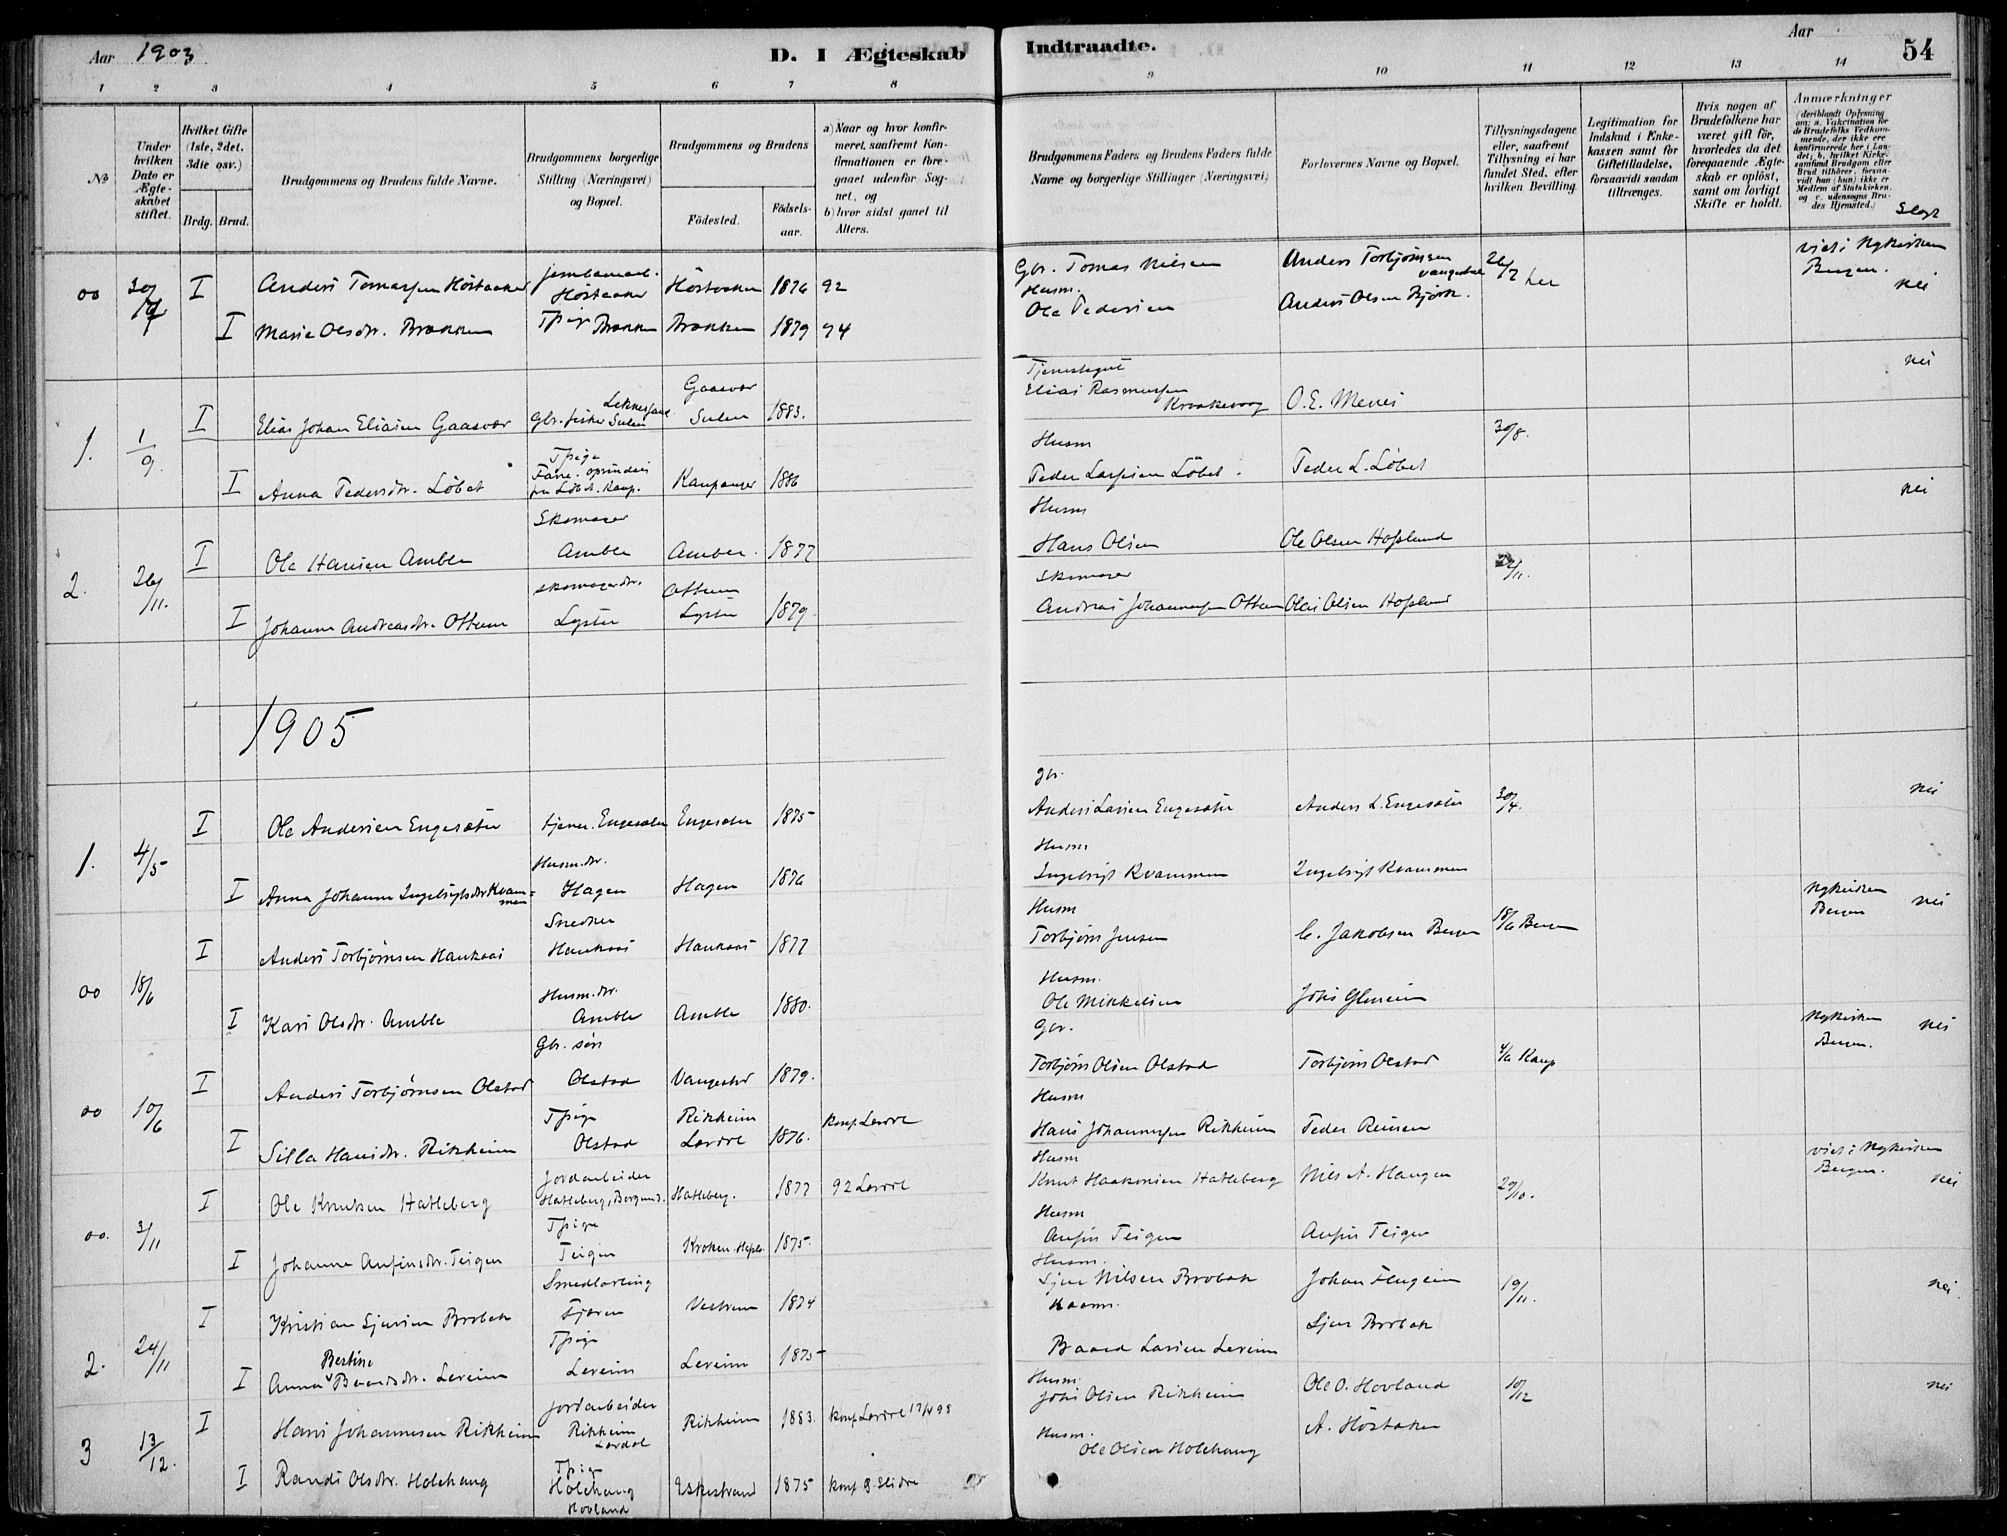 Aar 1903
D. I Ægteskab Indtraadte.
Aar
54
1 2 3 4 5 6 7 8 9 10 11 12 13 14
No
Under hvilken Dato er Ægteskabet stiftet.
Hvilket Gifte (1ste, 2det, 3die osv.)
Brdg. Brud.
Brudgommens og Brudens fulde Navne.
Brudgommens borgerlige Stilling (Næringsvei) og Bopæl.
Brudgommens og Brudens
Födested.
Födselsaar.
a) Naar og hvor konfirmeret, saafremt Konfirmationen er foregaaet udenfor Sognet, og
b) hvor sidst gaaet til Alters.
Brudgommens Faders og Brudens Faders fulde Navne og borgerlige Stillinger (Næringsvei)
Forlovernes Navne og Bopæl.
Tillysningsdagene eller, saafremt Tillysning ei har fundet Sted, efter hvilken Bevilling.
Legitimation for Indskud i Enkekassen samt for Giftetilladelse, forsaavidt saadan tiltrænges.
Hvis nogen af Brudefolkene har været gift för, hvorledes da det foregaaende Ægteskab er oplöst, samt om lovligt Skifte er holdt.
Anmærkninger (deriblandt Oplysning om: a. Vakcination for de Brudefolks Vedkommende, der ikke ere konfirmerede her i Landet; b. hvilket Kirkesamfund Brudgom eller Brud tilhörer, forsaavidt han (hun) ikke er Medlem af Statskirken, og c. udensogns Brudes Hjemsted.)
Slegt
00 30/7 I Anders Tomassen Höstaaker Höstaaker Höstaaker 1876 92 Gbr. Tomas Nilsen Anders Torbjörnsen Vangestad 26/7 her viet i Nykirken Bergen. nei
I Marie Olsdr. Brækken Tpige Brækken Brækken 1879 94 Husm. Ole Pedersen Anders Olsen Björk.
1. 1/9 I Elias Johan Eliasen Gaasvær Gbr. fisker Sulen Gaasvær Sulen 1883. Elias Rasmussen Kraakevaag O. E. Menes 30/8. nei
I Anna Pedersdr. Löbet Tpige oprindeli fra Löbet. Kaup. Kaupanger 1886 Husm Peder Larssen Löbet. Peder L. Löbet
2. 26/11. I Ole Hansen Amble Skomager Amble Amble. 1877 Husm Hans Olsen Ole Olsen Hofslund nei
I Johanne Andreasdr. Ottum skomagerdr. Lyster Ottum Lyster 1879. Skomager Andreas Johannessen Ottum Olai Olsen Hofslund
1905
1. 4/5 I Ole Andersen Engesæter tjener. Engesæter Engesæter 1875 gbr. Anders Larsen Engesæter Anders L. Engesæter 30/4. nei
I Anna Johanne Ingebrigtsdr Kvammen Husm.dr. Hagen Hagen 1876 Husm Ingebrigt Kvammen Ingebrigt Kvammen
00 18/6 I Anders Torbjörnsen Haukaas Snedker Haukaas Haukaas 1877 Husm Torbjörn Jensen C. Jakobsen Bergen 18/6 Bergen Nykirken Bergen nei
I Kari Olsdr. Amble Husm.dr. Amble Amble 1880. Husm. Ole Mikkelsen
00 10/6 I Anders Torbjörnsen Olstad Gbr. sön Olstad Vangestad 1879. Gbr. Torbjörn Olsen Olstad Torbjörn Olstad 4/6 Kaup Nykirken Bergen. nei
I Silla Hansdr. Rikheim Tpige Olstad Rikheim Lærdal 1876. konf. Lærdal Husm Hans Johannessen Rikheim Peder
00. 3/11 I Ole Knutsen Hatleberg Jordarbeider Hatleberg, Borgund. Hatleberg. 1877 92 Lærdal Husm Knut Haakonsen Hatleberg Nils A. Haugen 29/10. viet i Nykirken Bergen. nei
I Johanne Anfinsdr. Teigen Tpige Teigen Kroken. Hafslo 1875. Husm Anfin Teigen Anfin Teigen
2. 24/11 I Kristian Sjursen Brobak Smedlærling Fjæren Vestrem 1874 Husm. Sjur Nilsen Brobak Johan 19/11. nei.
I Anna Bertine Baardsdr. Lereim Tpige Lereim Lereim 1875 Baard Larsen Lereim Sjur Brobak
3 13/12. I Hans Johannesen Rikheim Jordarbeider Rikheim Lærdal Rikheim 1883. konf. Lærdal 17/4 98 Husm. Johs Olsen Rikheim Ole O. Hovland 10/12 nei
I Randi Olsdr. Holehaug Tpige Holehaug Hovland 1875 konf Ö. Slidre Husm. Ole Olsen Holehaug A. Höstaker